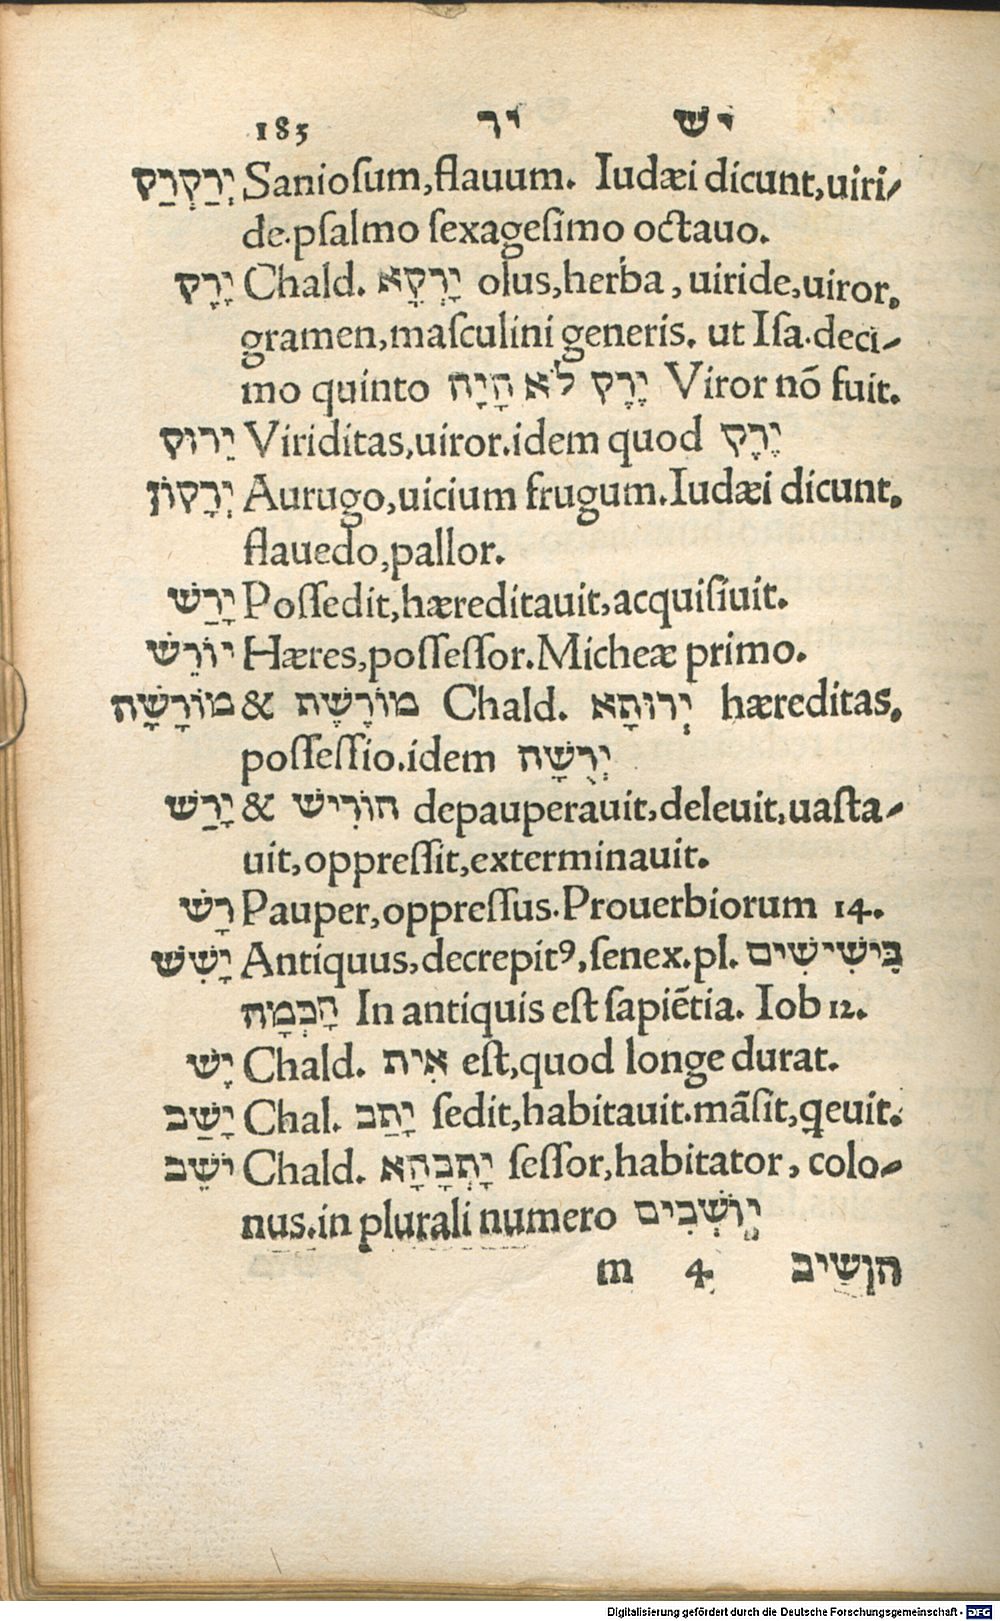 185 יר יש
יְרַקְרַק Sanioſum,flauum. Iudæi dicunt,uiri⸗
de.pſalmo ſexageſimo octauo.
יָרָק Chald. יָרְקָא olus,herba, uiride,uiror,
gramen,maſculini generis. ut Iſa.deci⸗
mo quinto יֶרֶק לֹא הָיָה Viror nõ fuit.
יַרוּק Viriditas,uiror.idem quod יֶרֶק
יְרָקוֹן Aurugo,uicium frugum.Iudæi dicunt,
flauedo,pallor.
יָרַשׁ Poſſedit,hæreditauit,acquiſiuit.
יוֹרֵשׁ Hæres,poſſeſſor.Micheæ primo.
מוֹרָשָׁה & מוֹרֶשֶׁה Chald. יְרוּתָא hæreditas,
poſſeſſio.idem יְרֻשָׁה
יָרַשׁ & הוֹרִישׁ depauperauit,deleuit,uaſta⸗
uit,oppreſſit,exterminauit.
רָשׁ Pauper,oppreſſus.Prouerbiorum 14.
יָשִׁשׁ Antiquus,decrepitꝰ,ſenex.pl. בִּישִׁישִׁים
חָכְמָה In antiquis eſt ſapiẽtia. Iob 12.
יֶשׁ Chald. אִית eſt,quod longe durat.
יָשַׁב Chal. יָתַב ſedit,habitauit.mãſit,ꝗeuit.
יֹשֵׁב Chald. יָתְבָהָא ſeſſor,habitator, colo⸗
nus.in plurali numero יוֹשְׁבִים
m 4 הושיב